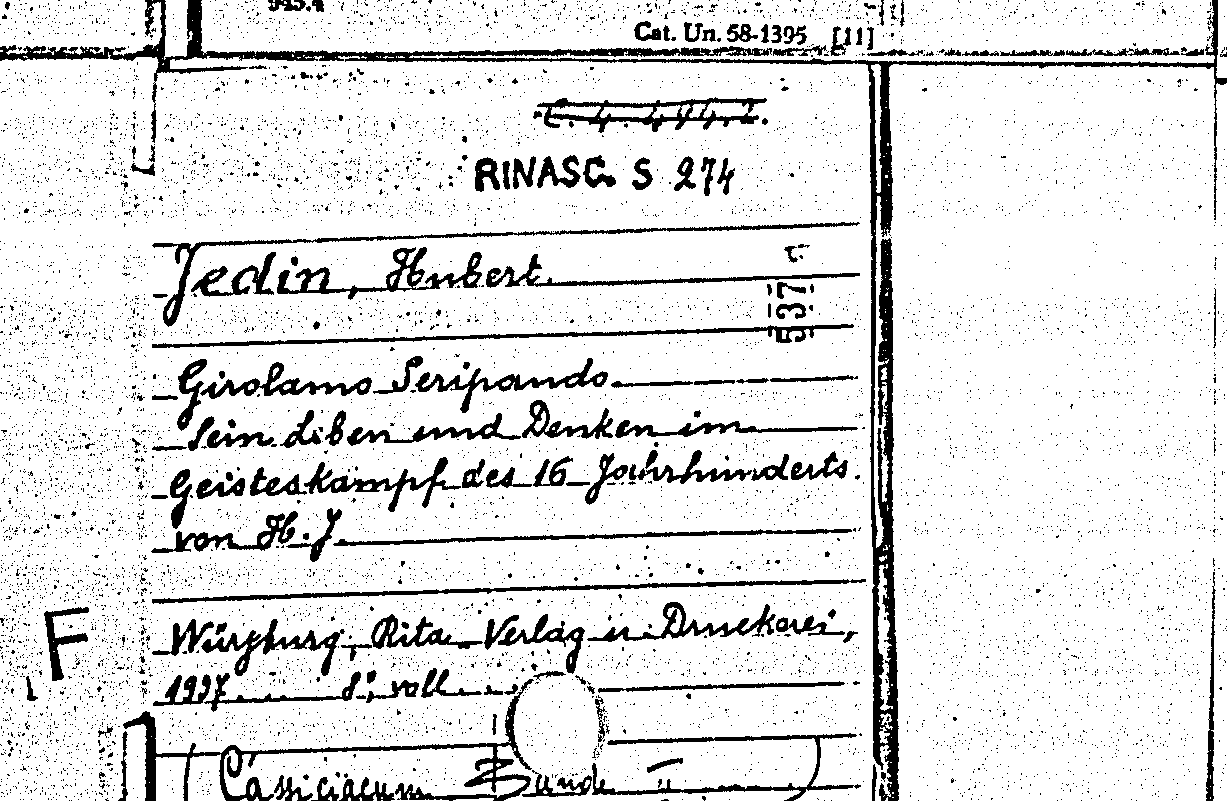 945.4
Cat. Un. 58-1395 [11]
C. 4. 494.2.
RINASC. S 274
Jedin, Hubert.
537 r.
Girolamo Seripando
Sein Leben und Denken im
Geisteskampf des 16 Jahrhunderts.
von H. J.
Würzburg, Rita Verlag u. Druckerei,
F
1937 8°, voll.
(Cassiciacum Bände